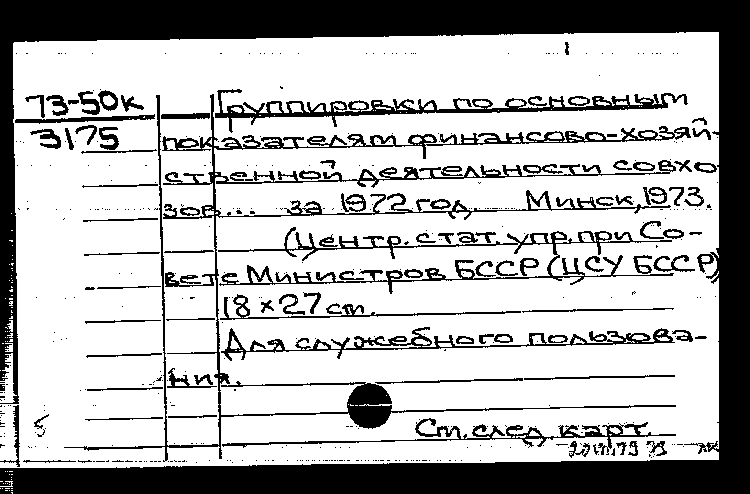 1
73-50к Группировки по основным
3175 показателям финансово-хозяй-
ственной деятельности совхо-
зов... за 1972 год. Минск, 1973.
(Центр. стат. упр. при Со-
вете Министров БССР (ЦСУ БССР)
18 × 27 см.
Для служебного пользова-
ния.
5 См. след. карт.